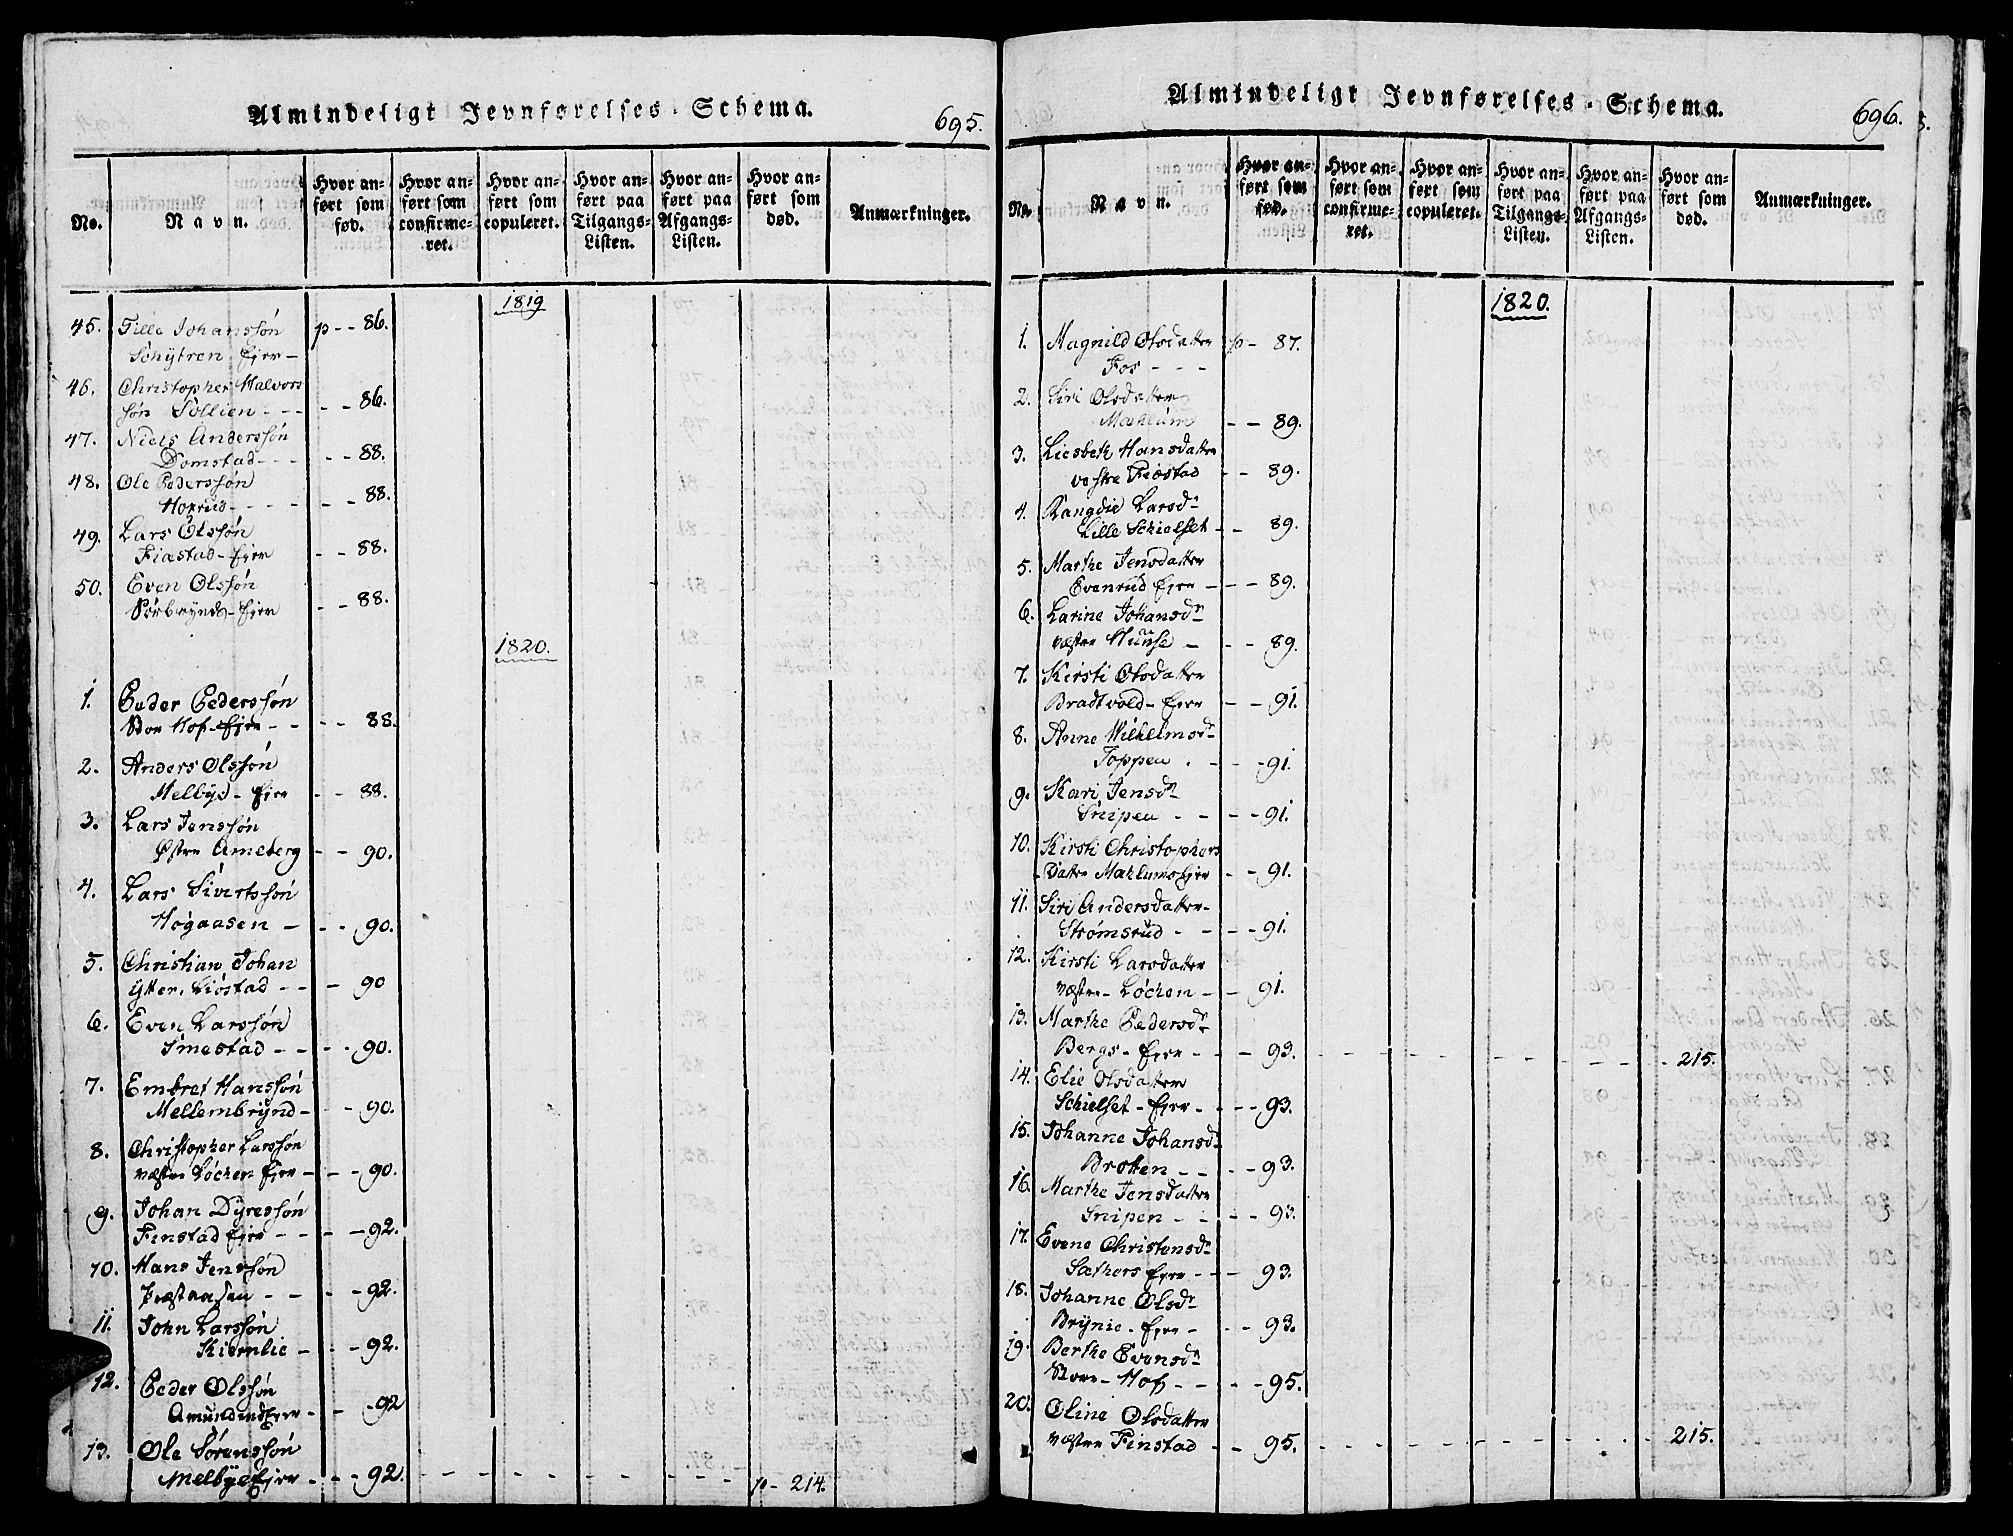 Almindeligt Jevnførelses-Schema.
695.
No.
Navn.
Hvor anført som fød.
Hvor anført som confirmeret.
Hvor anført som copuleret.
Hvor anført paa Tilgangs-Listen.
Hvor anført paa Afgangs-Listen.
Hvor anført som død.
Anmærkninger.
1819
45. Tille Johanssøn p - - 86.
Schÿtren Ejer -
46. Christopher Halvors
søn Sollien - - - - - 86.
47. Niels Anderssøn
Domstad - - - - - 88.
48. Ole Pederssøn
Hoxrud - - - - - - 88.
49. Lars Olssøn
Fiæstad - Ejer - - 88.
50. Even Olssøn
Sørbrÿnds - Ejer - - 88.
1820.
1. Peder Pederssøn
Stor Hof - Ejer - - - - 88.
2. Anders Olssøn
Melbÿe - Ejer - - 88.
3. Lars Jenssøn
Østre Ameberg - - 90.
4. Lars Sivertssøn
Høgaasen - - - 90.
5. Christian Johan
ÿttre Liøstad - - - 90
6. Even Larssøn
Smestad - - - - 90.
7. Embret Hanssøn
Mellembrÿnd - - - 90.
8. Christopher Larssøn
Væstre Løchen Ejer - - - 90.
9. Johan Dÿressøn
Finstad Ejer - - - - 92.
10. Hans Jenssøn
Præstaasen - - - - 92.
11. John Larssøn
Kiernlie - - - 92.
12. Peder Olssøn
Amundrud Ejer - - - 92
13. Ole Sørenssøn
Melbÿe Ejer - - - 92. - - - - - - - - - p - 214.
Almindeligt Jevnførelses-Schema.
696.
No.
Navn.
Hvor anført som fød.
Hvor anført som confirmeret.
Hvor anført som copuleret.
Hvor anført paa Tilgangs-Listen.
Hvor anført paa Afgangs-Listen.
Hvor anført som død.
Anmærkninger.
1820.
1. Magnild Olsdatter p - 87.
Fos - - -
2. Siri Olsdatter
Mæhlum - - 89.
3. Liesbeth Hansdatter
vestre Fiæstad - - 89.
4. Rangdie Larsdr
Lille Schielset - - 89.
5. Marthe Jensdatter
Evenrud Ejer - - - 89.
6. Larine Johansdr
væstre Hunse - - - 89.
7. Kirsti Olsdatter
Bradtvold - Ejer - - 91.
8. Anne Wilhelmsdr
Toppen . - - - 91.
9. Kari Jensdr
Snipen - - - - 91.
10. Kirsti Christophers
Datter Mæhlums Ejer - - 91.
11. Siri Andersdatter -
Strømsrud - - - - 91.
12. Kirsti Larsdatter
Væstre - Løchen - - 91.
13. Marthe Pedersdr
Bergs - Ejer - - - 93. - - - - - - - - - 215.
14. Elie Olsdatter
Schielset - Ejer - - - 93.
15. Johanne Johansdr
Broten - - - - 93.
16. Marthe Jensdatter
Snipen - - - - 93.
17. Evene Christensdr
Sæthers Ejer - - - 93.
18. Johanne Olsdr
Brÿnie - Ejer - - - 93.
19. Berthe Evensdr
Store - Hof - - - - 95.
20. Oline Olsdatter
Væstre Finstad - - 95. - - - - - - - - - 215.